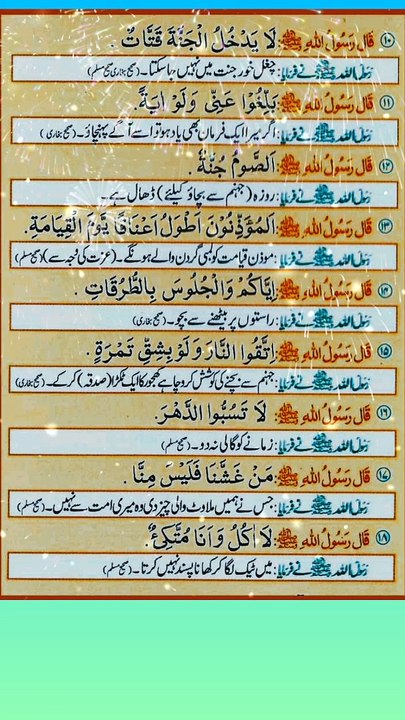 ۱۰ قَالَ رَسُوْلُ اللهِ ﷺ: لَا يَدْخُلُ الْجَنَّةَ قَتَّاتٌ.
رَسُولُ اللہ ﷺ نے فرمایا: چغل خور جنت میں نہیں جا سکتا۔ (صحیح بخاری صحیح مسلم)
۱۱ قَالَ رَسُوْلُ اللهِ ﷺ: بَلِّغُوْا عَنِّیْ وَلَوْ اٰيَةً.
رَسُولُ اللہ ﷺ نے فرمایا: اگر میرا ایک فرمان بھی یاد ہو تو اسے آگے پہنچاؤ۔ (صحیح بخاری)
۱۲ قَالَ رَسُوْلُ اللهِ ﷺ: اَلصَّوْمُ جُنَّةٌ.
رَسُولُ اللہ ﷺ نے فرمایا: روزہ (جہنم سے بچاؤ کیلئے) ڈھال ہے۔
۱۳ قَالَ رَسُوْلُ اللهِ ﷺ: اَلْمُؤَذِّنُوْنَ اَطْوَلُ اَعْنَاقًا يَّوْمَ الْقِيَامَةِ.
رَسُولُ اللہ ﷺ نے فرمایا: موذن قیامت کو لمبی گردن والے ہونگے۔ (عزت کی وجہ سے) (صحیح مسلم)
۱۴ قَالَ رَسُوْلُ اللهِ ﷺ: اِيَّاكُمْ وَالْجُلُوْسَ بِالطُّرُقَاتِ.
رَسُولُ اللہ ﷺ نے فرمایا: راستوں پر بیٹھنے سے بچو۔ (صحیح بخاری)
۱۵ قَالَ رَسُوْلُ اللهِ ﷺ: اِتَّقُوا النَّارَ وَلَوْ بِشِقِّ تَمْرَةٍ.
رَسُولُ اللہ ﷺ نے فرمایا: جہنم سے بچنے کی کوشش کرو چاہے کھجور کا ایک ٹکڑا (صدقہ) کر کے۔ (صحیح بخاری)
۱۶ قَالَ رَسُوْلُ اللهِ ﷺ: لَا تَسُبُّوا الدَّهْرَ.
رَسُولُ اللہ ﷺ نے فرمایا: زمانے کو گالی نہ دو۔ (صحیح مسلم)
۱۷ قَالَ رَسُوْلُ اللهِ ﷺ: مَنْ غَشَّنَا فَلَيْسَ مِنَّا.
رَسُولُ اللہ ﷺ نے فرمایا: جس نے ہمیں ملاوٹ والی چیز دی وہ میری امت سے نہیں۔ (صحیح مسلم)
۱۸ قَالَ رَسُوْلُ اللهِ ﷺ: لَا اٰكُلُ وَاَنَا مُتَّكِئٌ.
رَسُولُ اللہ ﷺ نے فرمایا: میں ٹیک لگا کر کھانا پسند نہیں کرتا۔ (صحیح مسلم)